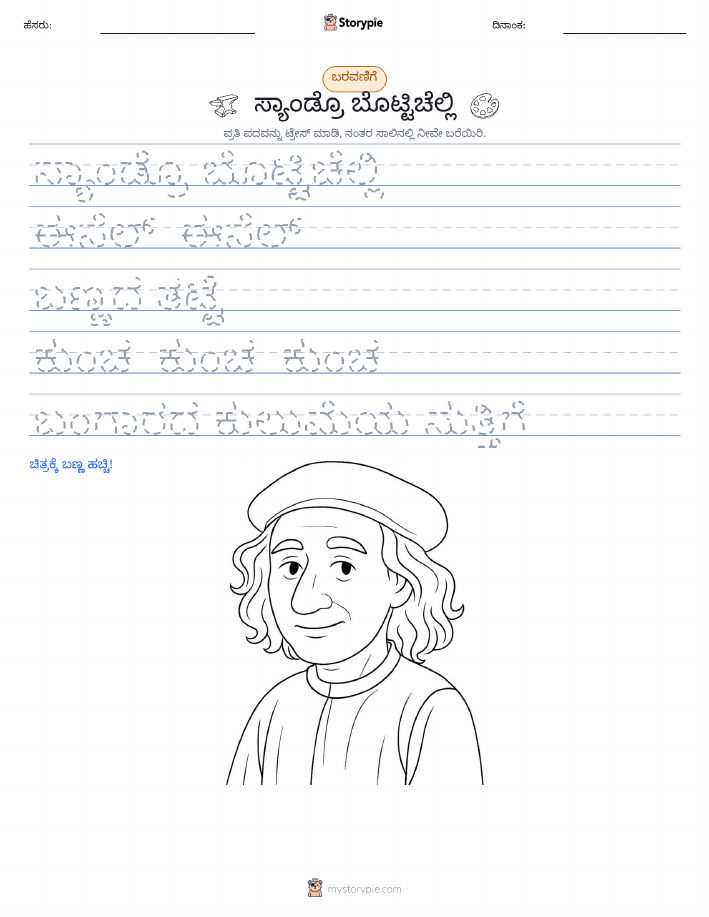 ಹೆಸರು:
Storypie
ದಿನಾಂಕ:
ಬರವಣಿಗೆ
ಸ್ಯಾಂಡ್ರೊ ಬೊಟ್ಟಿಚೆಲ್ಲಿ
ಪ್ರತಿ ಪದವನ್ನು ಟ್ರೇಸ್ ಮಾಡಿ, ನಂತರ ಸಾಲಿನಲ್ಲಿ ನೀವೇ ಬರೆಯಿರಿ.
ಸ್ಯಾಂಡ್ರೊ ಬೊಟ್ಟಿಚೆಲ್ಲಿ
ಈಸೆಲ್ ಈಸೆಲ್
ಬಣ್ಣದ ತಟ್ಟೆ
ಕುಂಚ ಕುಂಚ ಕುಂಚ
ಬಂಗಾರದ ಕುಲುಮೆಯ ಸುತ್ತಿಗೆ
ಚಿತ್ರಕ್ಕೆ ಬಣ್ಣ ಹಚ್ಚಿ!
mystorypie.com